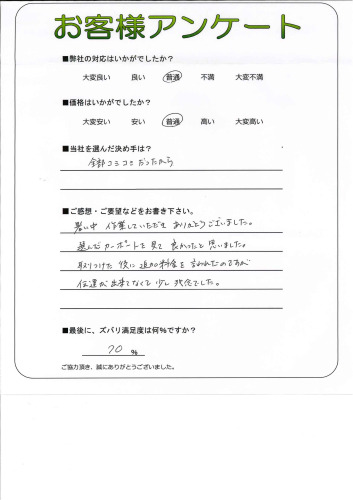 お客様アンケート
■弊社の対応はいかがでしたか？
大変良い 良い 普通 不満 大変不満
■価格はいかがでしたか？
大変安い 安い 普通 高い 大変高い
■当社を選んだ決め手は？
全部コミコミだったから
■ご感想・ご要望などをお書き下さい。
暑い中 作業していただき ありがとうございました。
選んだカーポートを見て 良かったと思いました。
取りつけた後に追加料金を言われたのですが
伝達が出来てなくて少し残念でした。
■最後に、ズバリ満足度は何％ですか？
70 ％
ご協力頂き、誠にありがとうございました。